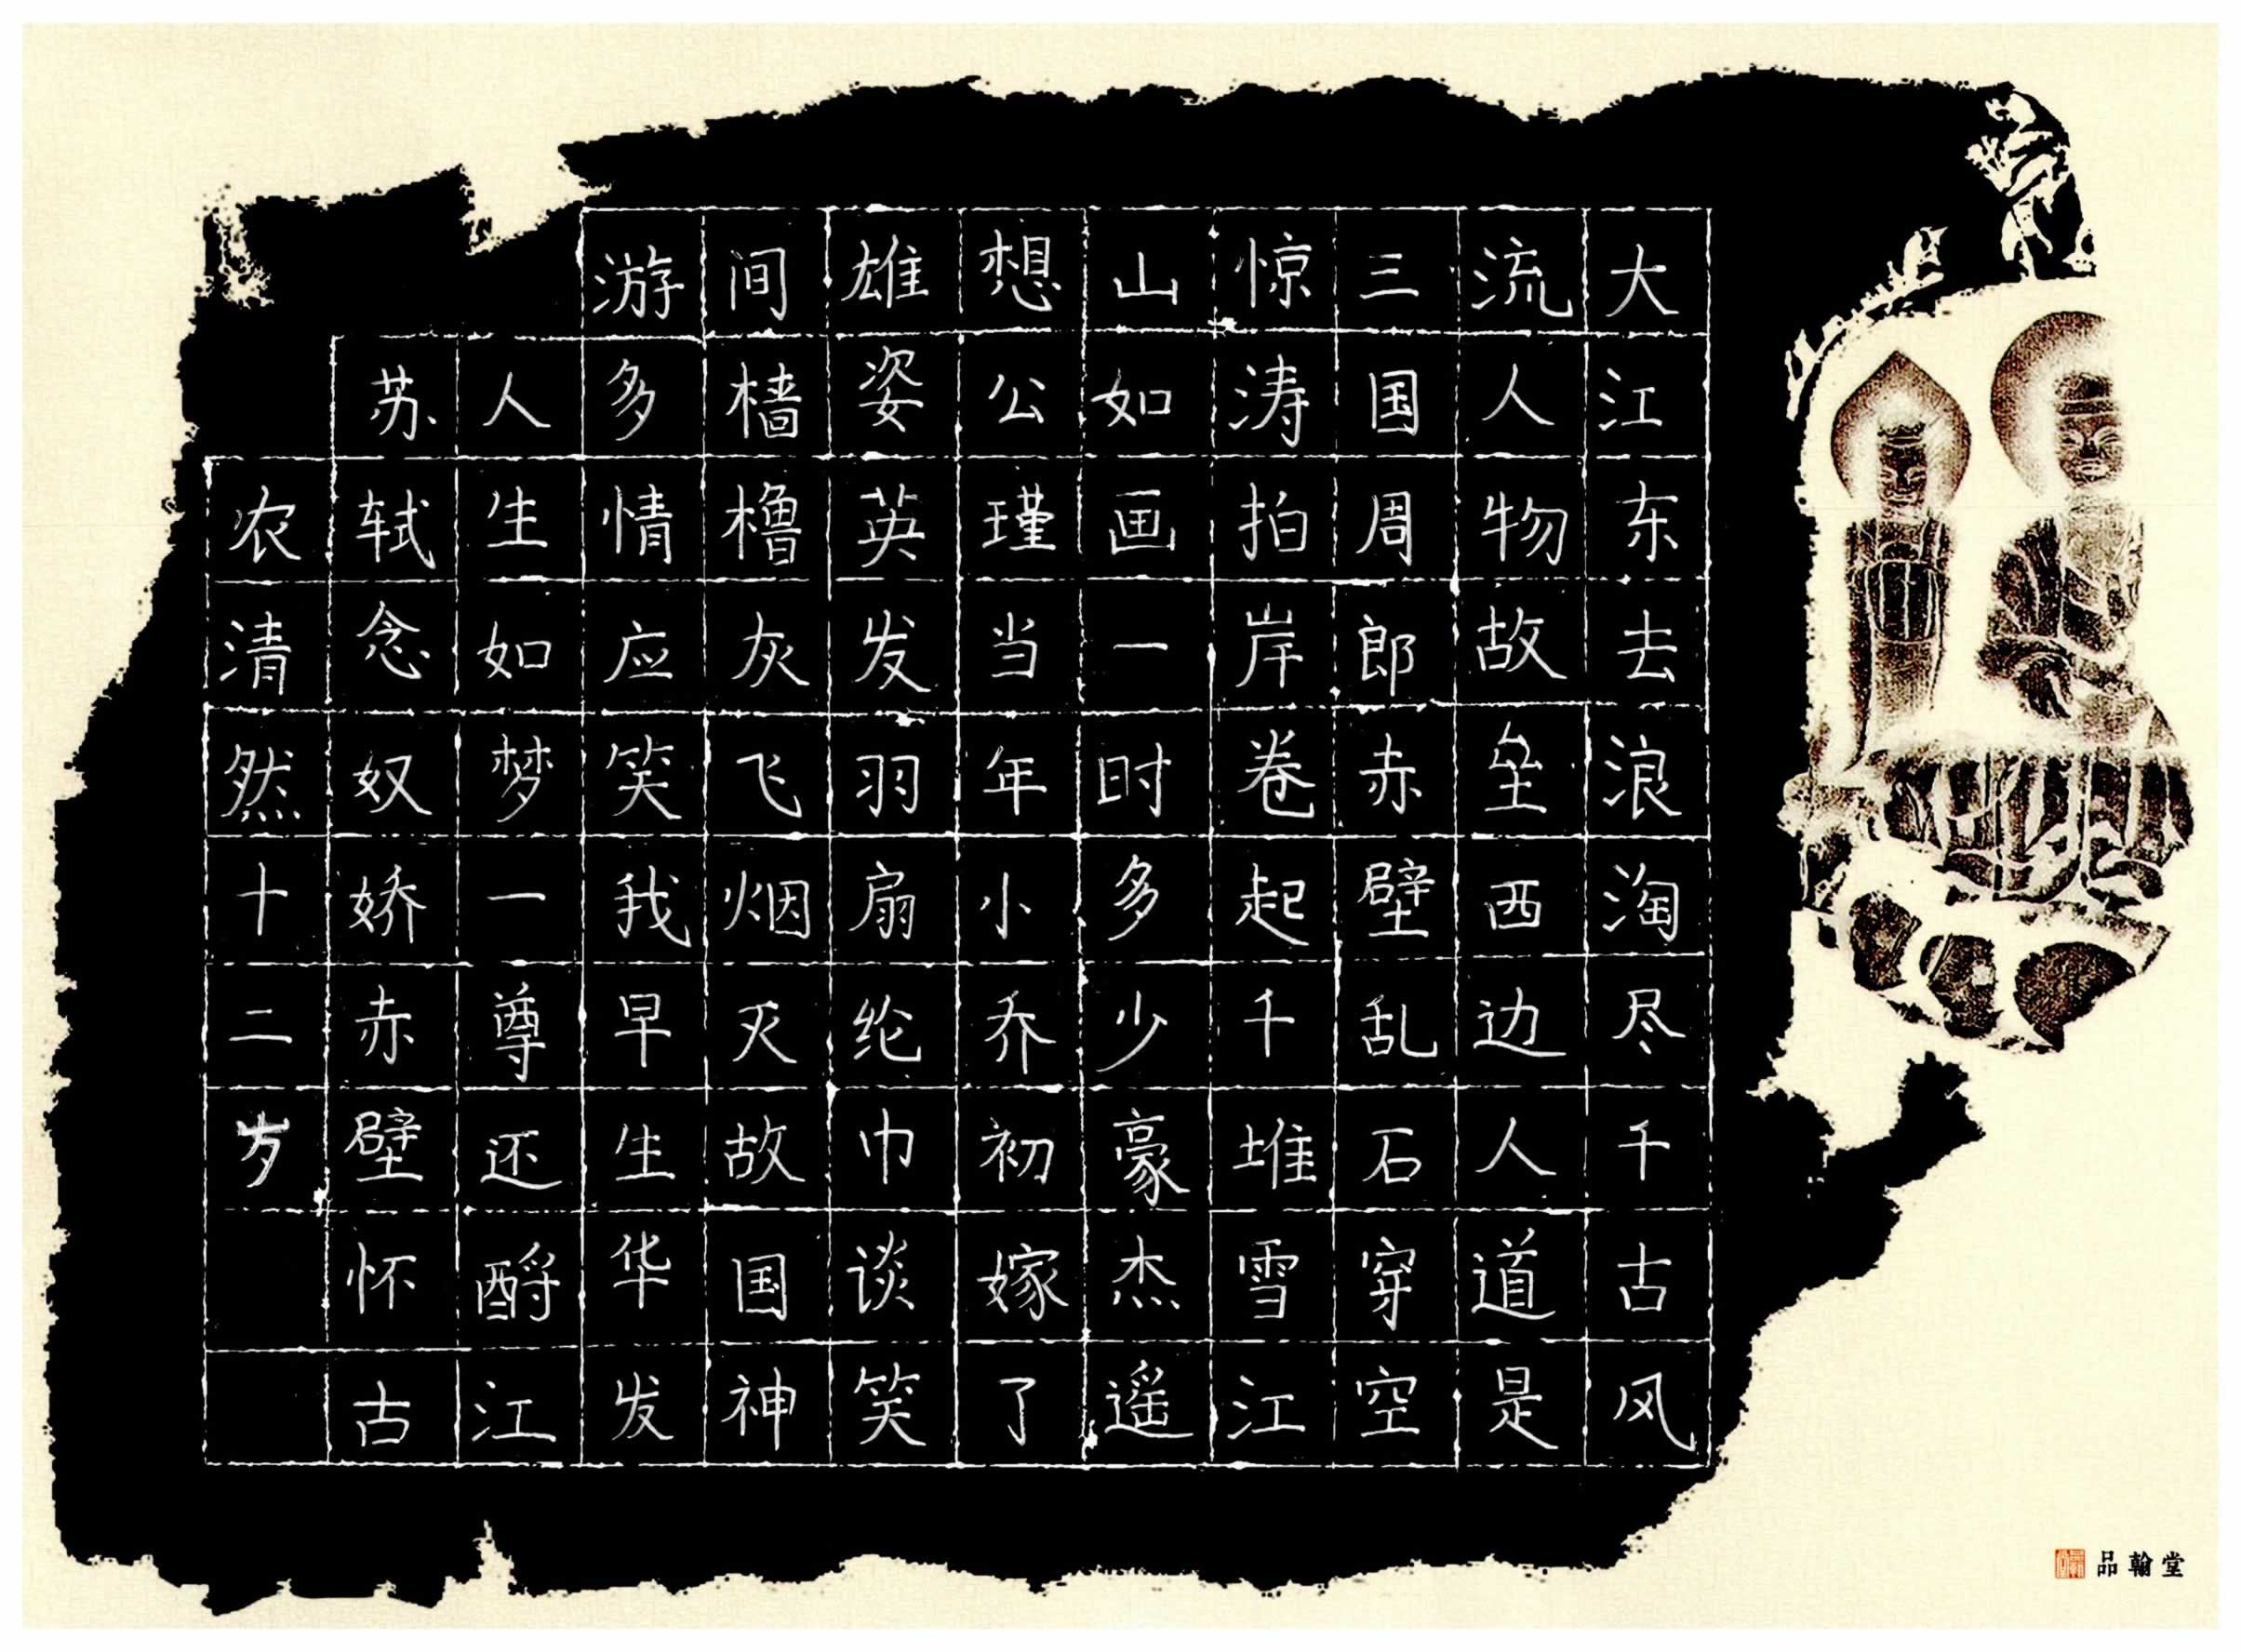 大江东去浪淘尽千古风
流人物故垒西边人道是
三国周郎赤壁乱石穿空
惊涛拍岸卷起千堆雪江
山如画一时多少豪杰遥
想公瑾当年小乔初嫁了
雄姿英发羽扇纶巾谈笑
间樯橹灰飞烟灭故国神
游多情应笑我早生华发
人生如梦一尊还酹江
苏轼念奴娇赤壁怀古
农清然十二岁
品翰堂